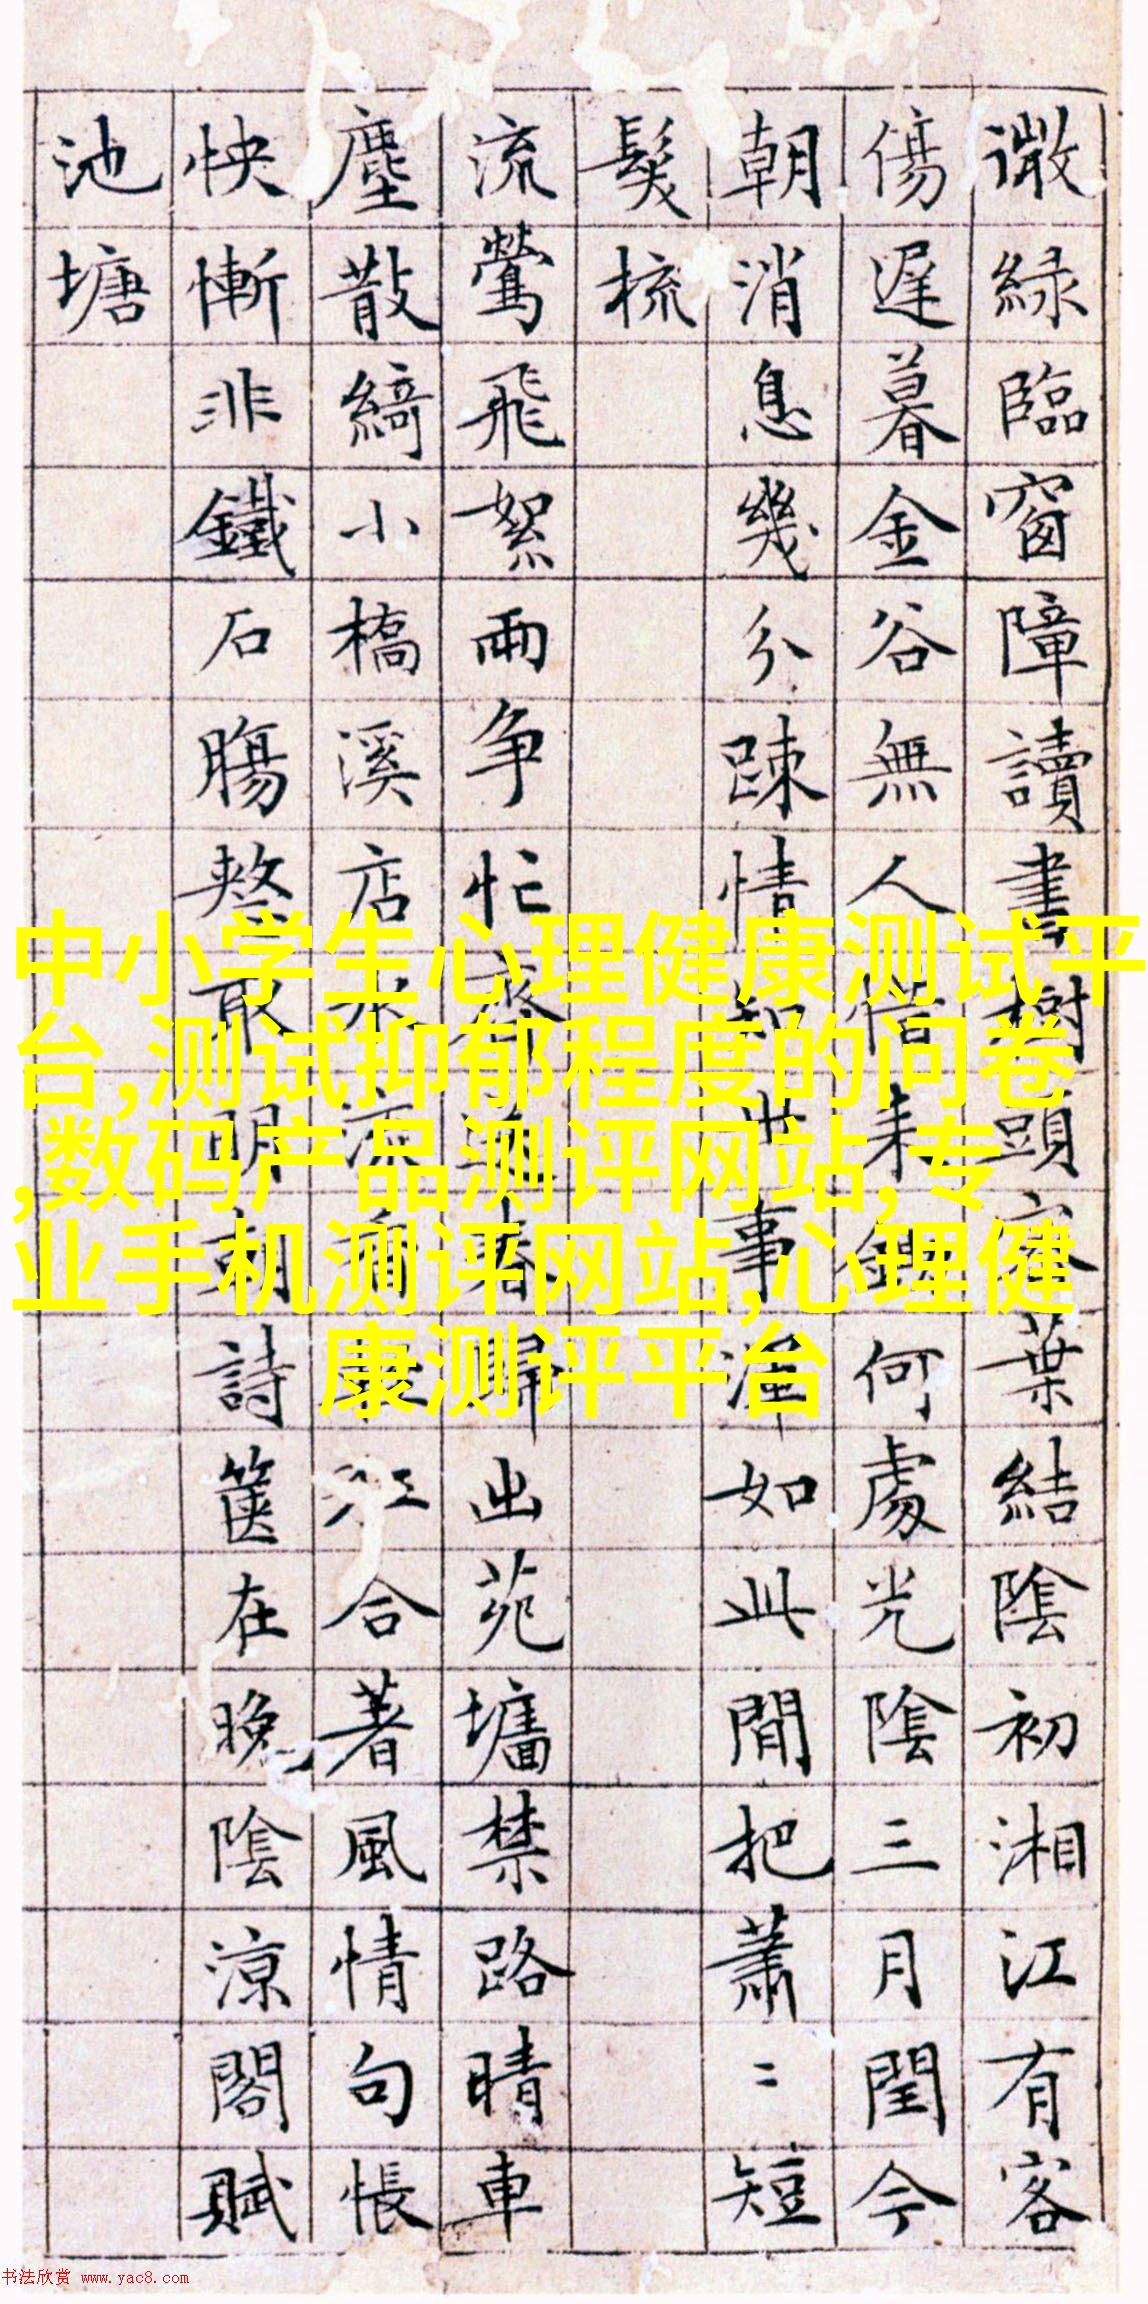 微綠臨窗障讀書樹頭葉結陰初湘江有客
傷遲暮金谷無人惜何處光陰三月閏今
朝消息幾分疎情知世事渾如此閒把蕭〻短
鬂梳
流鶯飛絮兩争忙春歸出苑墻禁路晴車
塵散綺小橋溪店江合著風情句悵
怏慚非鐵石腸整取明朝詩篋在晚陰涼閣賦
池塘
中小学生心理健康测试平
台,测试抑郁程度的问卷
,数码产品测评网站,专
业手机测评网站,心理健
康测评平台
书法欣赏 www.yac8.com